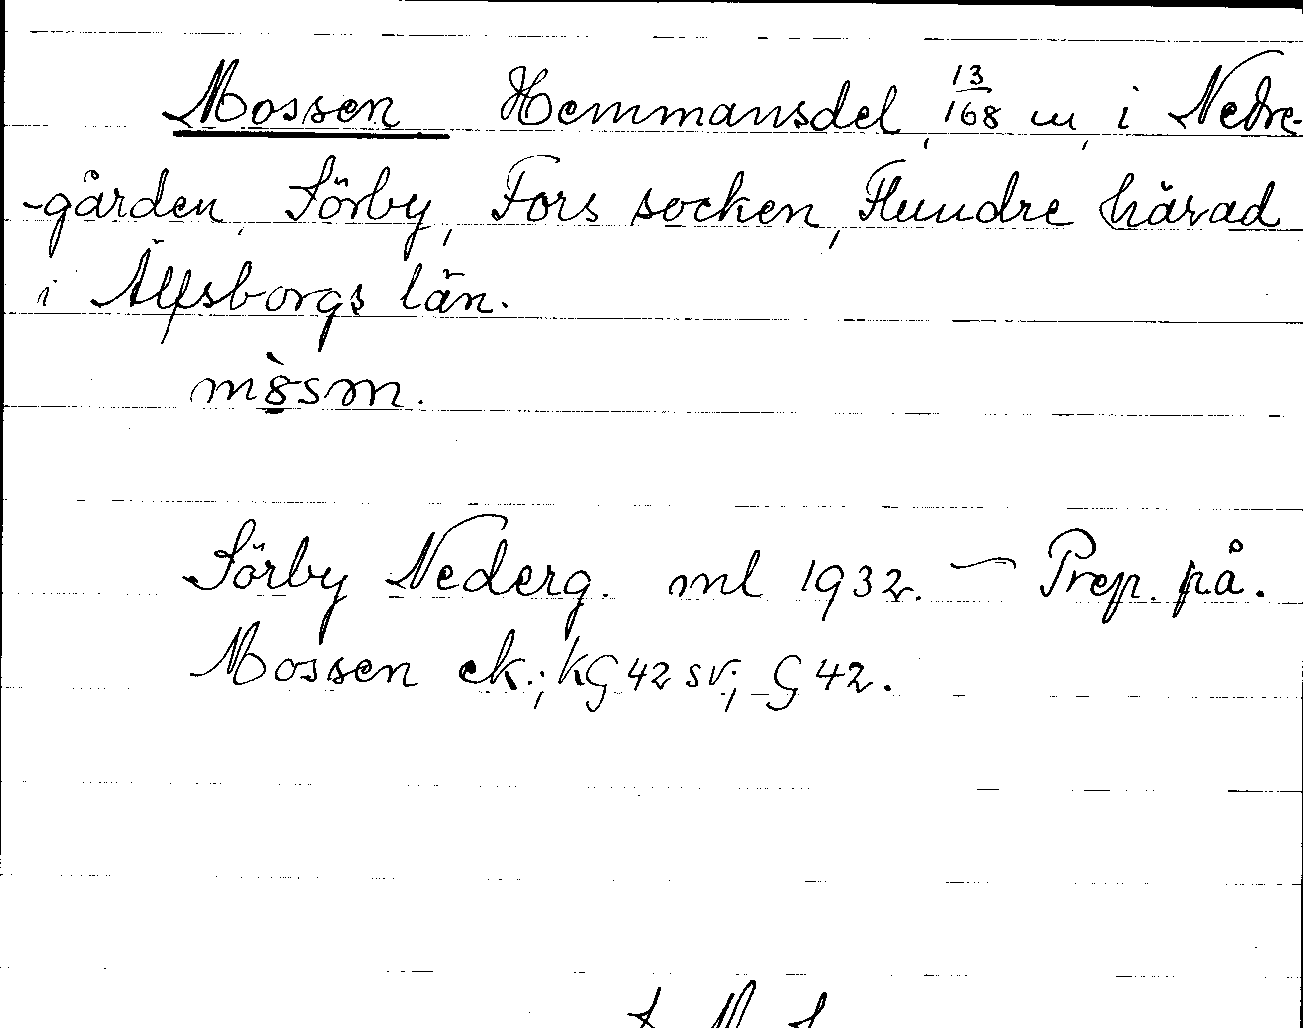 Mossen Hemmansdel, 13/168 m, i Nedre-
-gården, Sörby, Fors socken, Flundre härad
i Älfsborgs län.
Sörby Nederg. ml 1932. — Prep. på.
Mossen ek.; kG 42 sv; G 42.